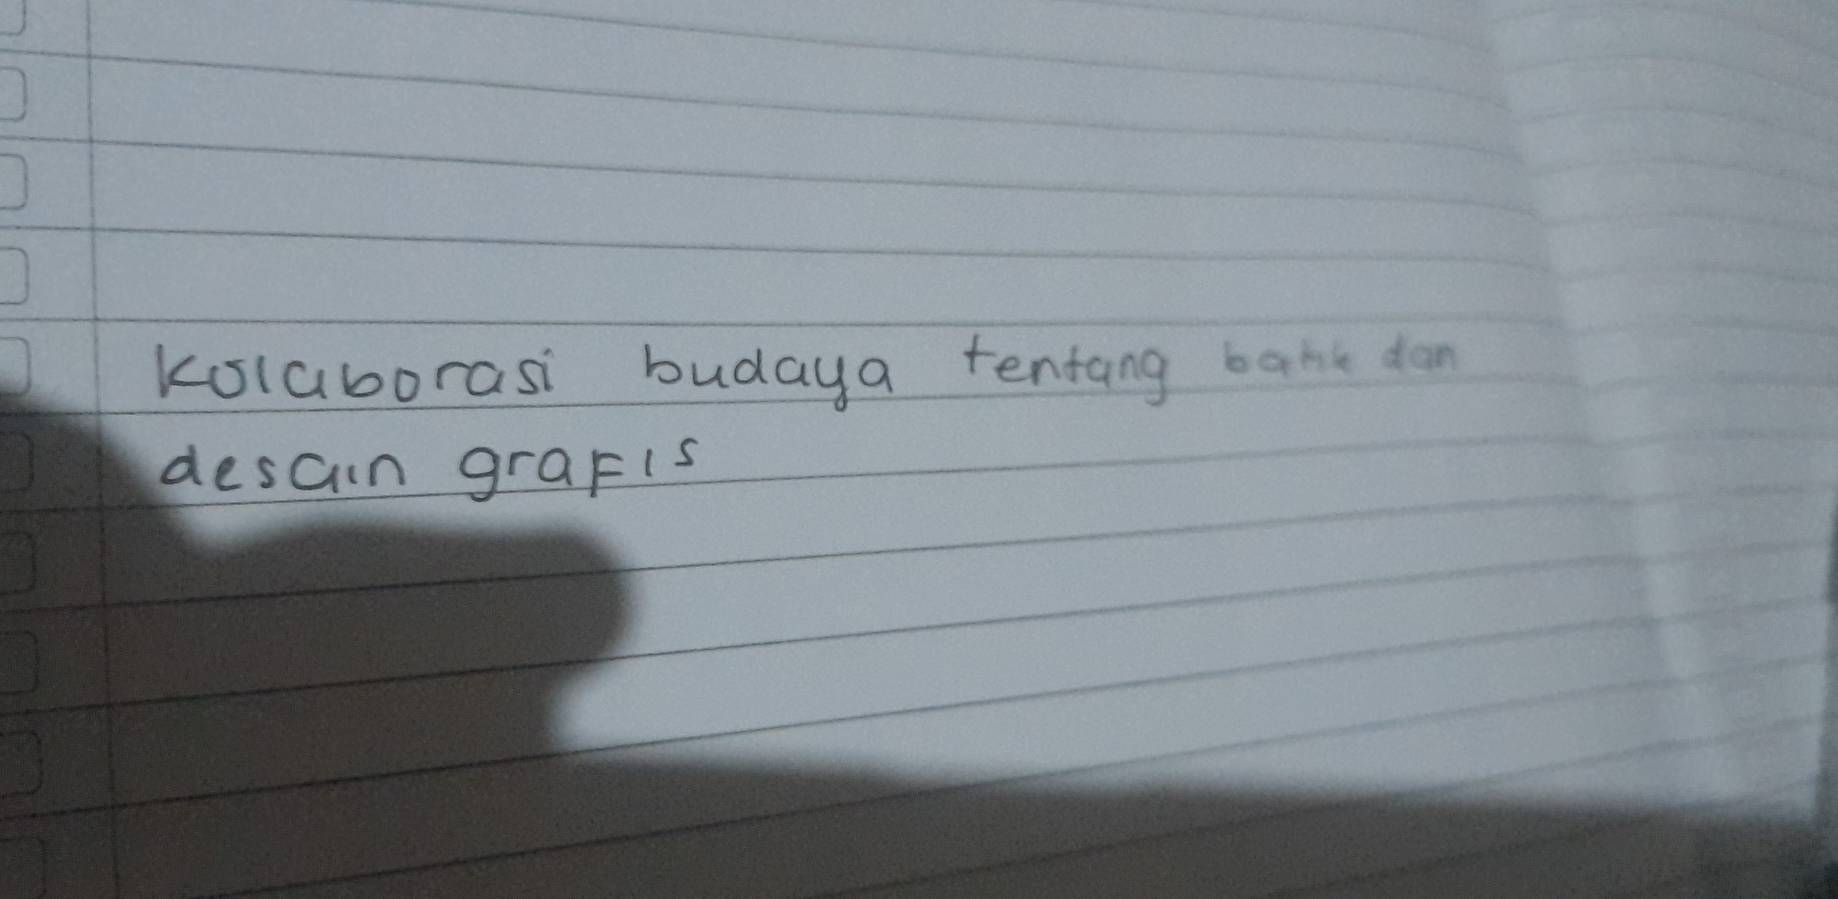 Kolaborasi budaya tentang batik dan
desain graFis